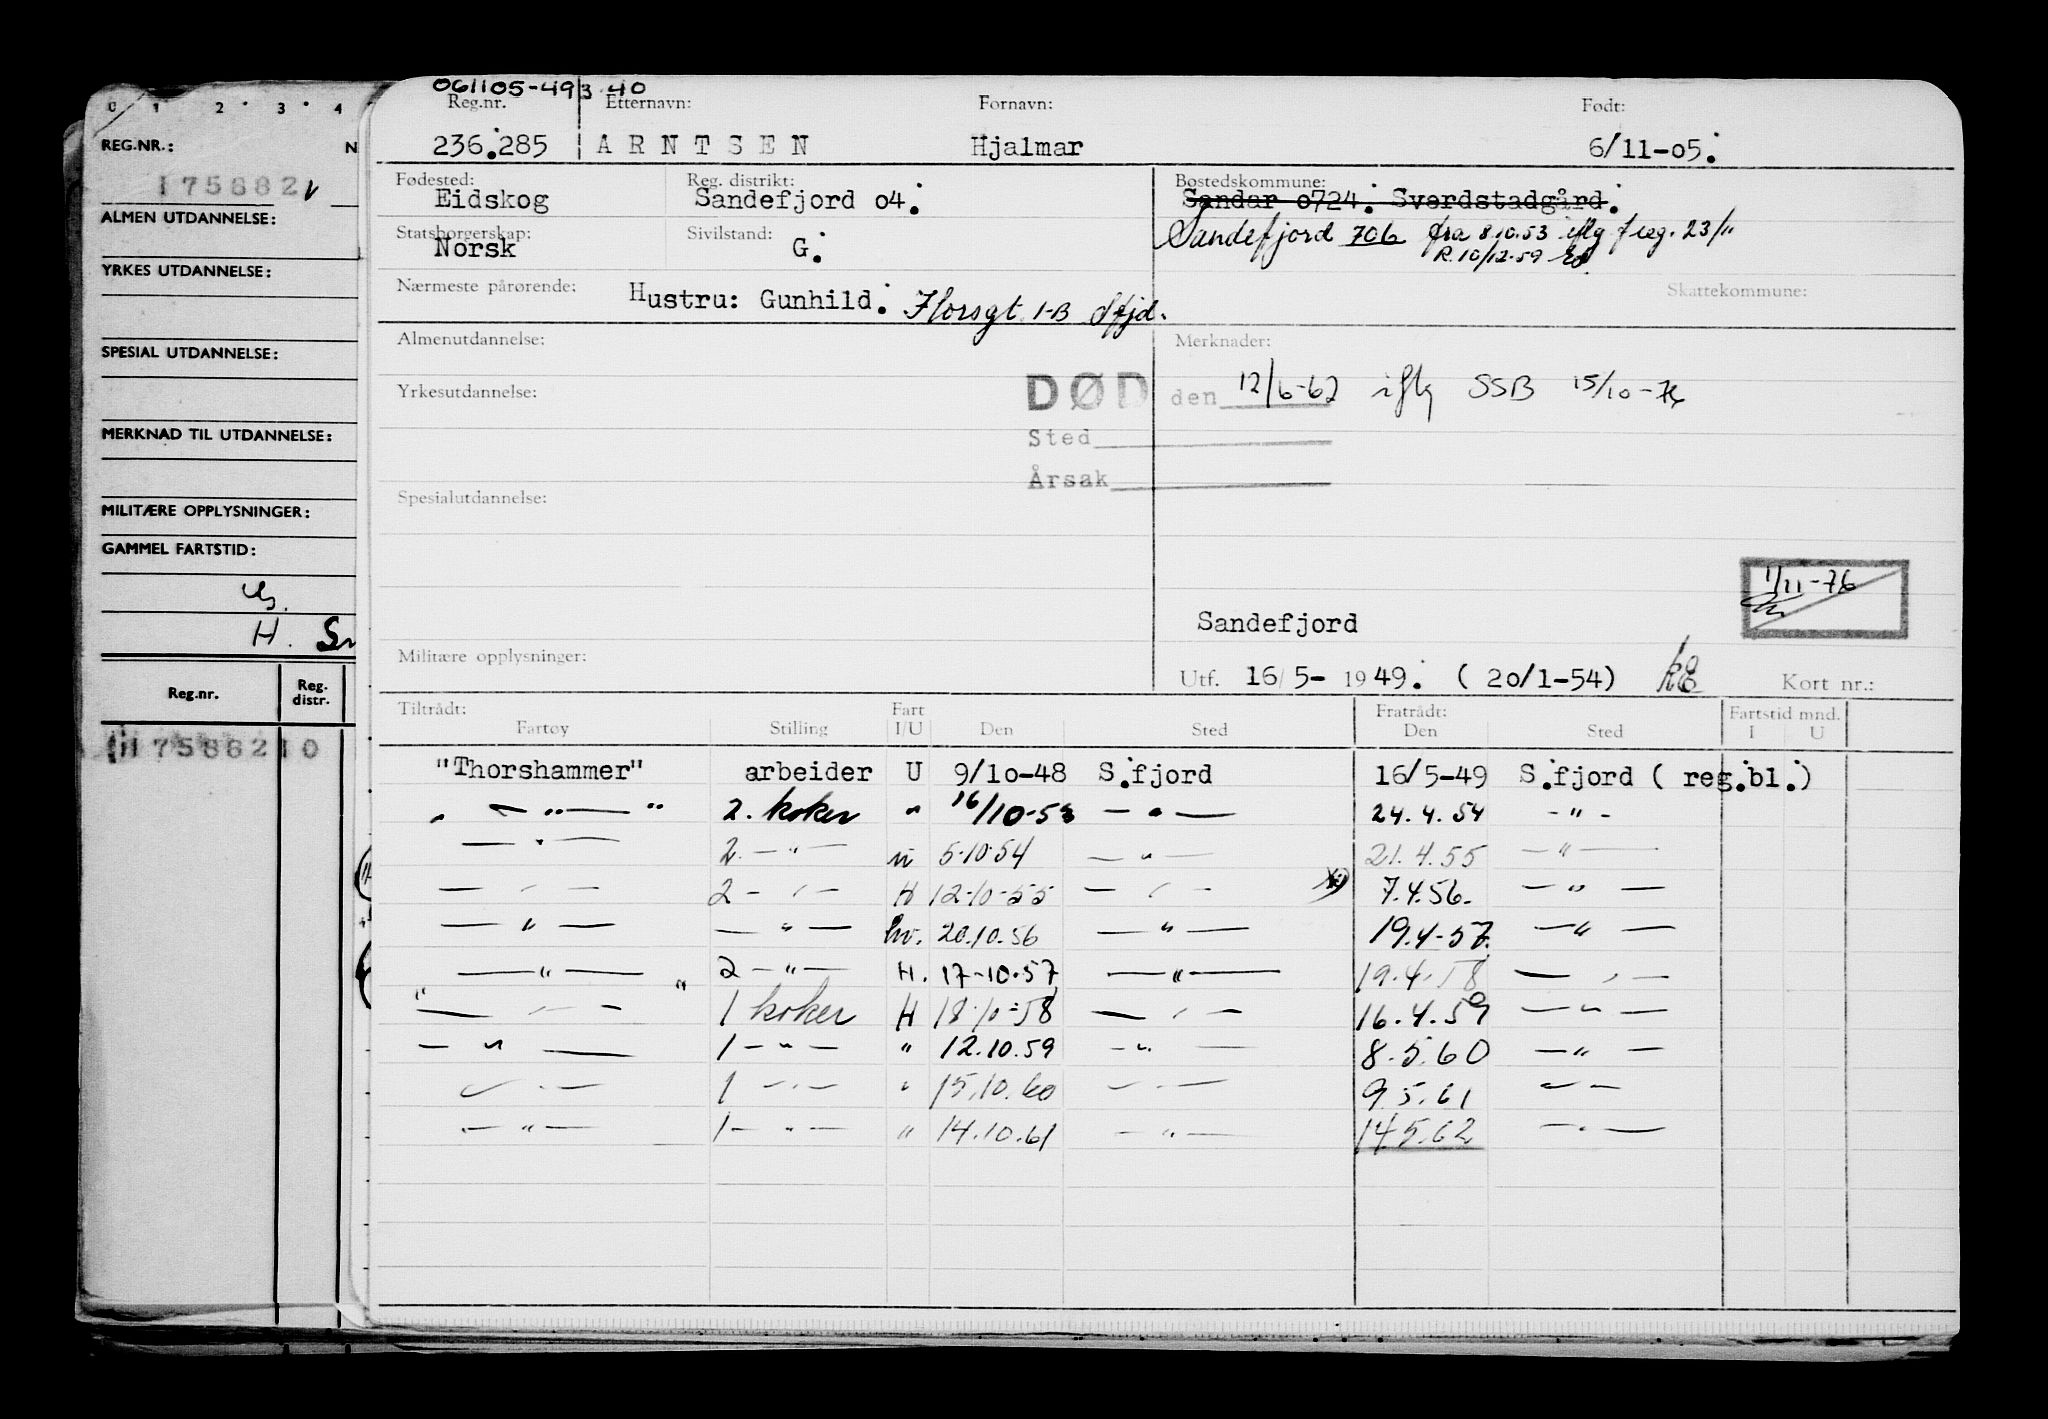 0 1 2 3 4
REG.NR.: N
175682
ALMEN UTDANNELSE:
YRKES UTDANNELSE:
SPESIAL UTDANNELSE:
MERKNAD TIL UTDANNELSE:
MILITÆRE OPPLYSNINGER:
GAMMEL FARTSTID:
H.
Reg.nr. Reg. distr.
061105-493 40
Reg.nr. Etternavn: Fornavn: Født:
236.285 ARNTSEN Hjalmar 6/11-05.
Fødested: Reg. distrikt: Bostedskommune:
Eidskog Sandefjord 04. Sandar 0724. Sverdstadgård.
Statsborgerskap: Sivilstand: Sandefjord 706 fra 8.10.53 iflg freg. 23/11
Norsk G. R.10/12-59
Nærmeste pårørende: Skattekommune:
Hustru: Gunhild. Horsgt 1-B Sfjd.
Almenutdannelse: Merknader:
Yrkesutdannelse: DØD den 12/6-62 iflg SSB 15/10-76
Sted
Årsak
Spesialutdannelse:
1/11-76
Sandefjord
Militære opplysninger:
Utf. 16/5- 1949. (20/1-54) Kort nr.:
Tiltrådt: Fart Fratrådt: Fartstid mnd.
Fartøy Stilling I/U Den Sted Den Sted I U
"Thorshammer" arbeider U 9/10-48 S.fjord 16/5-49 S.fjord ( reg.bl.)
" — " — " 2. koker " 16/10-53 — " — 24.4.54 - " -
— " — 2. — " — u 5.10.54 — " — 21.4.55 — " —
— " — 2 — " — H 12-10-55 — " — 7.4.56. — " —
— " — — " — hv. 20.10.56 — " — 19.4-57. — " —
— " — 2 — " — H. 17-10-57 — " — 19.4.58 — " —
" — " — " 1 koker H 18.10-58 — " — 16.4.59 — " —
— " — 1 — " — " 12.10.59 — " — 8.5.60 — " —
— " — 1 — " — " 15.10.60 — " — 9.5.61 — " —
— " — 1 — " — " 14.10.61 — " — 14.5.62 — " —